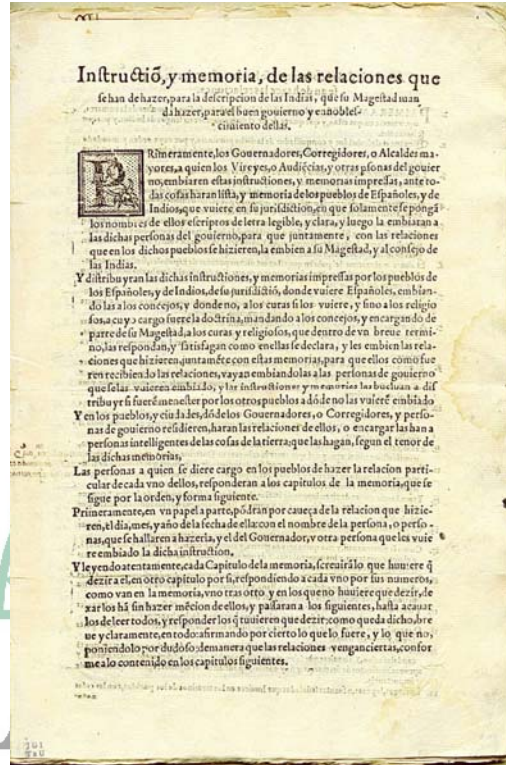 Instructiõ, y memoria, de las relaciones que
se han de hazer, para la descripcion de las Indias, que su Magestad man
da hazer, para el buen gouierno y ennobles-
cimiento dellas.
PRimeramente, los Gouernadores, Corregidores, o Alcaldes ma
yores, a quien los Vireyes, o Audiẽcias, y otras psonas del gouier
no, embiaren estas instructiones, y memorias impressas, ante to-
das cosas haran lista, y memoria de los pueblos de Españoles, y de
Indios, que vuiere en su jurisdiction, en que solamente se pongã
los nombres de ellos escriptos de letra legible, y clara, y luego la embiaran a
las dichas personas del gouierno, para que juntamente, con las relaciones
que en los dichos pueblos se hizieren, la embien a su Magestad, y al consejo de
las Indias.
Y distribuyran las dichas instructiones, y memorias impressas por los pueblos de
los Españoles, y de Indios, de su jurisdictiõ, donde vuiere Españoles, embian-
do las a los concejos, y donde no, a los curas si los vuiere, y sino a los religio
sos, a cuyo cargo fuere la doctrina, mandando a los concejos, y encargando de
parte de su Magestad, a los curas y religiosos, que dentro de vn breue termi-
no, las respondan, y satisfagan como en ellas se declara, y les embien las rela-
ciones que hizieren, juntamẽte con estas memorias, para que ellos como fue
ren recibiendo las relaciones, vayan embiandolas a las personas de gouierno
que se las vuieren embiado, y las instructiones y memorias las bueluan a dis
tribuyr si fuere menester por los otros pueblos a dõde no las vuierẽ embiado
Y en los pueblos, y ciudades, dõde los Gouernadores, o Corregidores, y perso-
nas de gouierno residieren, haran las relaciones de ellos, o encargar las han a
personas inteligentes de las cosas de la tierra: que las hagan, segun el tenor de
las dichas memorias,
Las personas a quien se diere cargo en los pueblos de hazer la relacion parti-
cular de cada vno dellos, responderan a los capitulos de la memoria, que se
sigue por la orden, y forma siguiente.
Primeramente, en vn papel a parte, põdran por caueça de la relacion que hizie-
ren, el dia, mes, y año de la fecha de ella: con el nombre de la persona, o perso-
nas, que se hallaren a hazerla, y el del Gouernador, v otra persona que les vuie
re embiado la dicha instruction.
Y leyendo atentamente, cada Capitulo de la memoria, screuirã lo que huuiere q̃
dezir a el, en otro capitulo por si, respondiendo a cada vno por sus numeros,
como van en la memoria, vno tras otro y en los que no huuiere que dezir, de
xar los hã sin hazer mẽcion de ellos, y passaran a los siguientes, hasta acauar
los de leer todos, y responder los q̃ tuuieren que dezir: como queda dicho, bre
ue y claramente, en todo: afirmando por cierto lo que lo fuere, y lo que no,
poniendolo por dudoso: demanera que las relaciones vengan ciertas, confor
me a lo contenido en los capitulos siguientes.